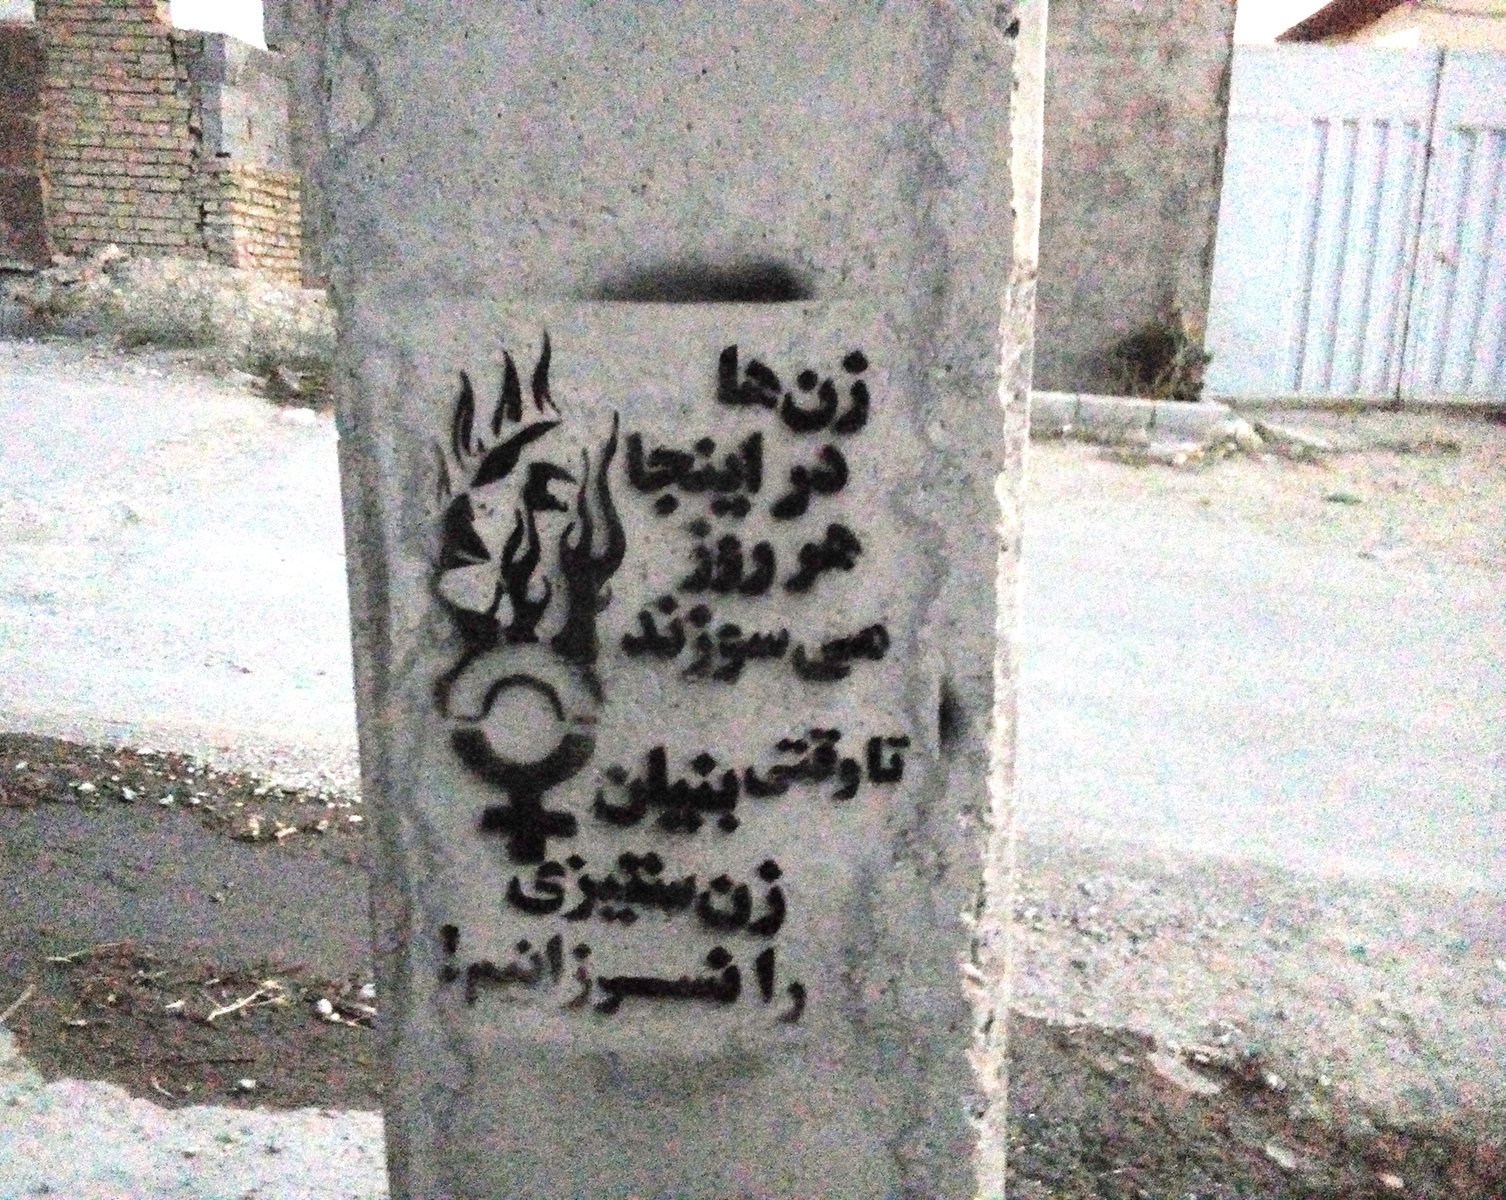 زن‌ها
در اینجا
هر روز
می‌سوزند
تا وقتی بنیان
زن‌ستیزی
را نسوزانیم!